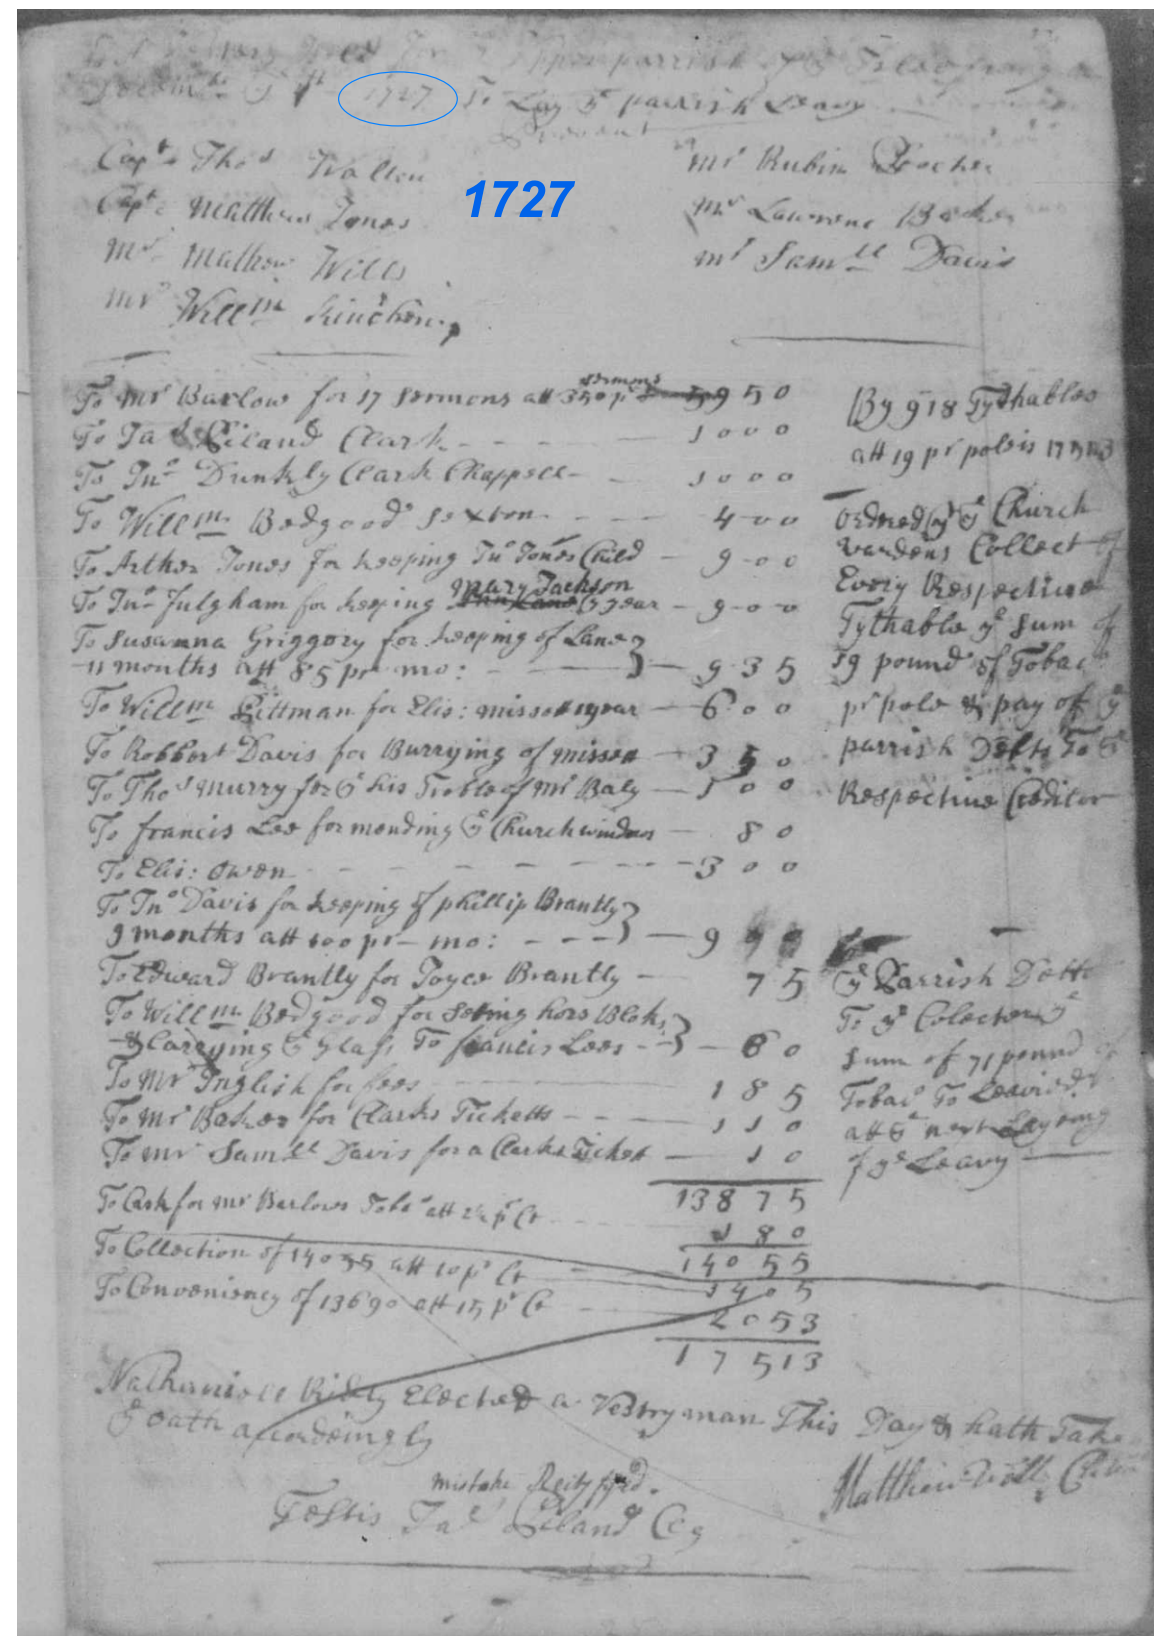 Decemb 1727 To Lay ye parrish Leavy
Present
Capt Thos Wallen
Mr Rubin
Capt Matthew Jones
Mr Lawrence Baker
1727
Mr Mathew Wills
Mr Samll Davis
Mr Willm Kinchen
To Mr Barlow for 17 sermons att 350 pr sermons 5950
To Jas Leiland Clark 1000
To Jno Dunkly Clark Chappell 1000
To Willm Bedgood Sexton 400
To Arther Jones for keeping Jno Jones Child 900
To Jno Fulgham for keeping Mary Jackson year 900
To Susanna Griggory for keeping of Lane
11 months att 85 pr mo: 935
To Willm Pittman for Elis: 1 year 600
To Robbert Davis for Burrying of 350
To Thos Murry for ye his Troble of Mr Baly 500
To francis Lee for mending ye Church windows 80
To Elis: Owen 300
To Jno Davis for keeping of phillip Brantly
9 months att 100 pr mo: 900
To Edward Brantly for Joyce Brantly 75
To Willm Bedgood for seting hors Bloks
& Carrying ye Glass To francis Lees 60
To Mr Inglish for fees 185
To Mr Baker for Clarks Ticketts 110
To Mr Samll Davis for a Clarks Ticket 10
13875
To Cask for Mr Barlows Tobo att pr Ct 180
14055
To Collection of 14055 att 10 pr Ct 1405
To Conveniency of 13690 att 15 pr Ct 2053
17513
By 918 Tythables
att 19 pr pole is
Ordred yt ye Church
wardens Collect of
Every Respective
Tythable ye sum of
19 pound of Tobac
pr pole & pay of ye
parrish Debts To ye
Respective Creditor
ye Parrish Debt
To ye Colector ye
sum of 71 pound of
Tobac To Leavied
att ye next Laying
of ye Leavy
Nathaniell Ridly Elected a Vestryman This Day & hath Take
ye oath accordingly
mistake
Matthew Wills
Testis Jas Leiland